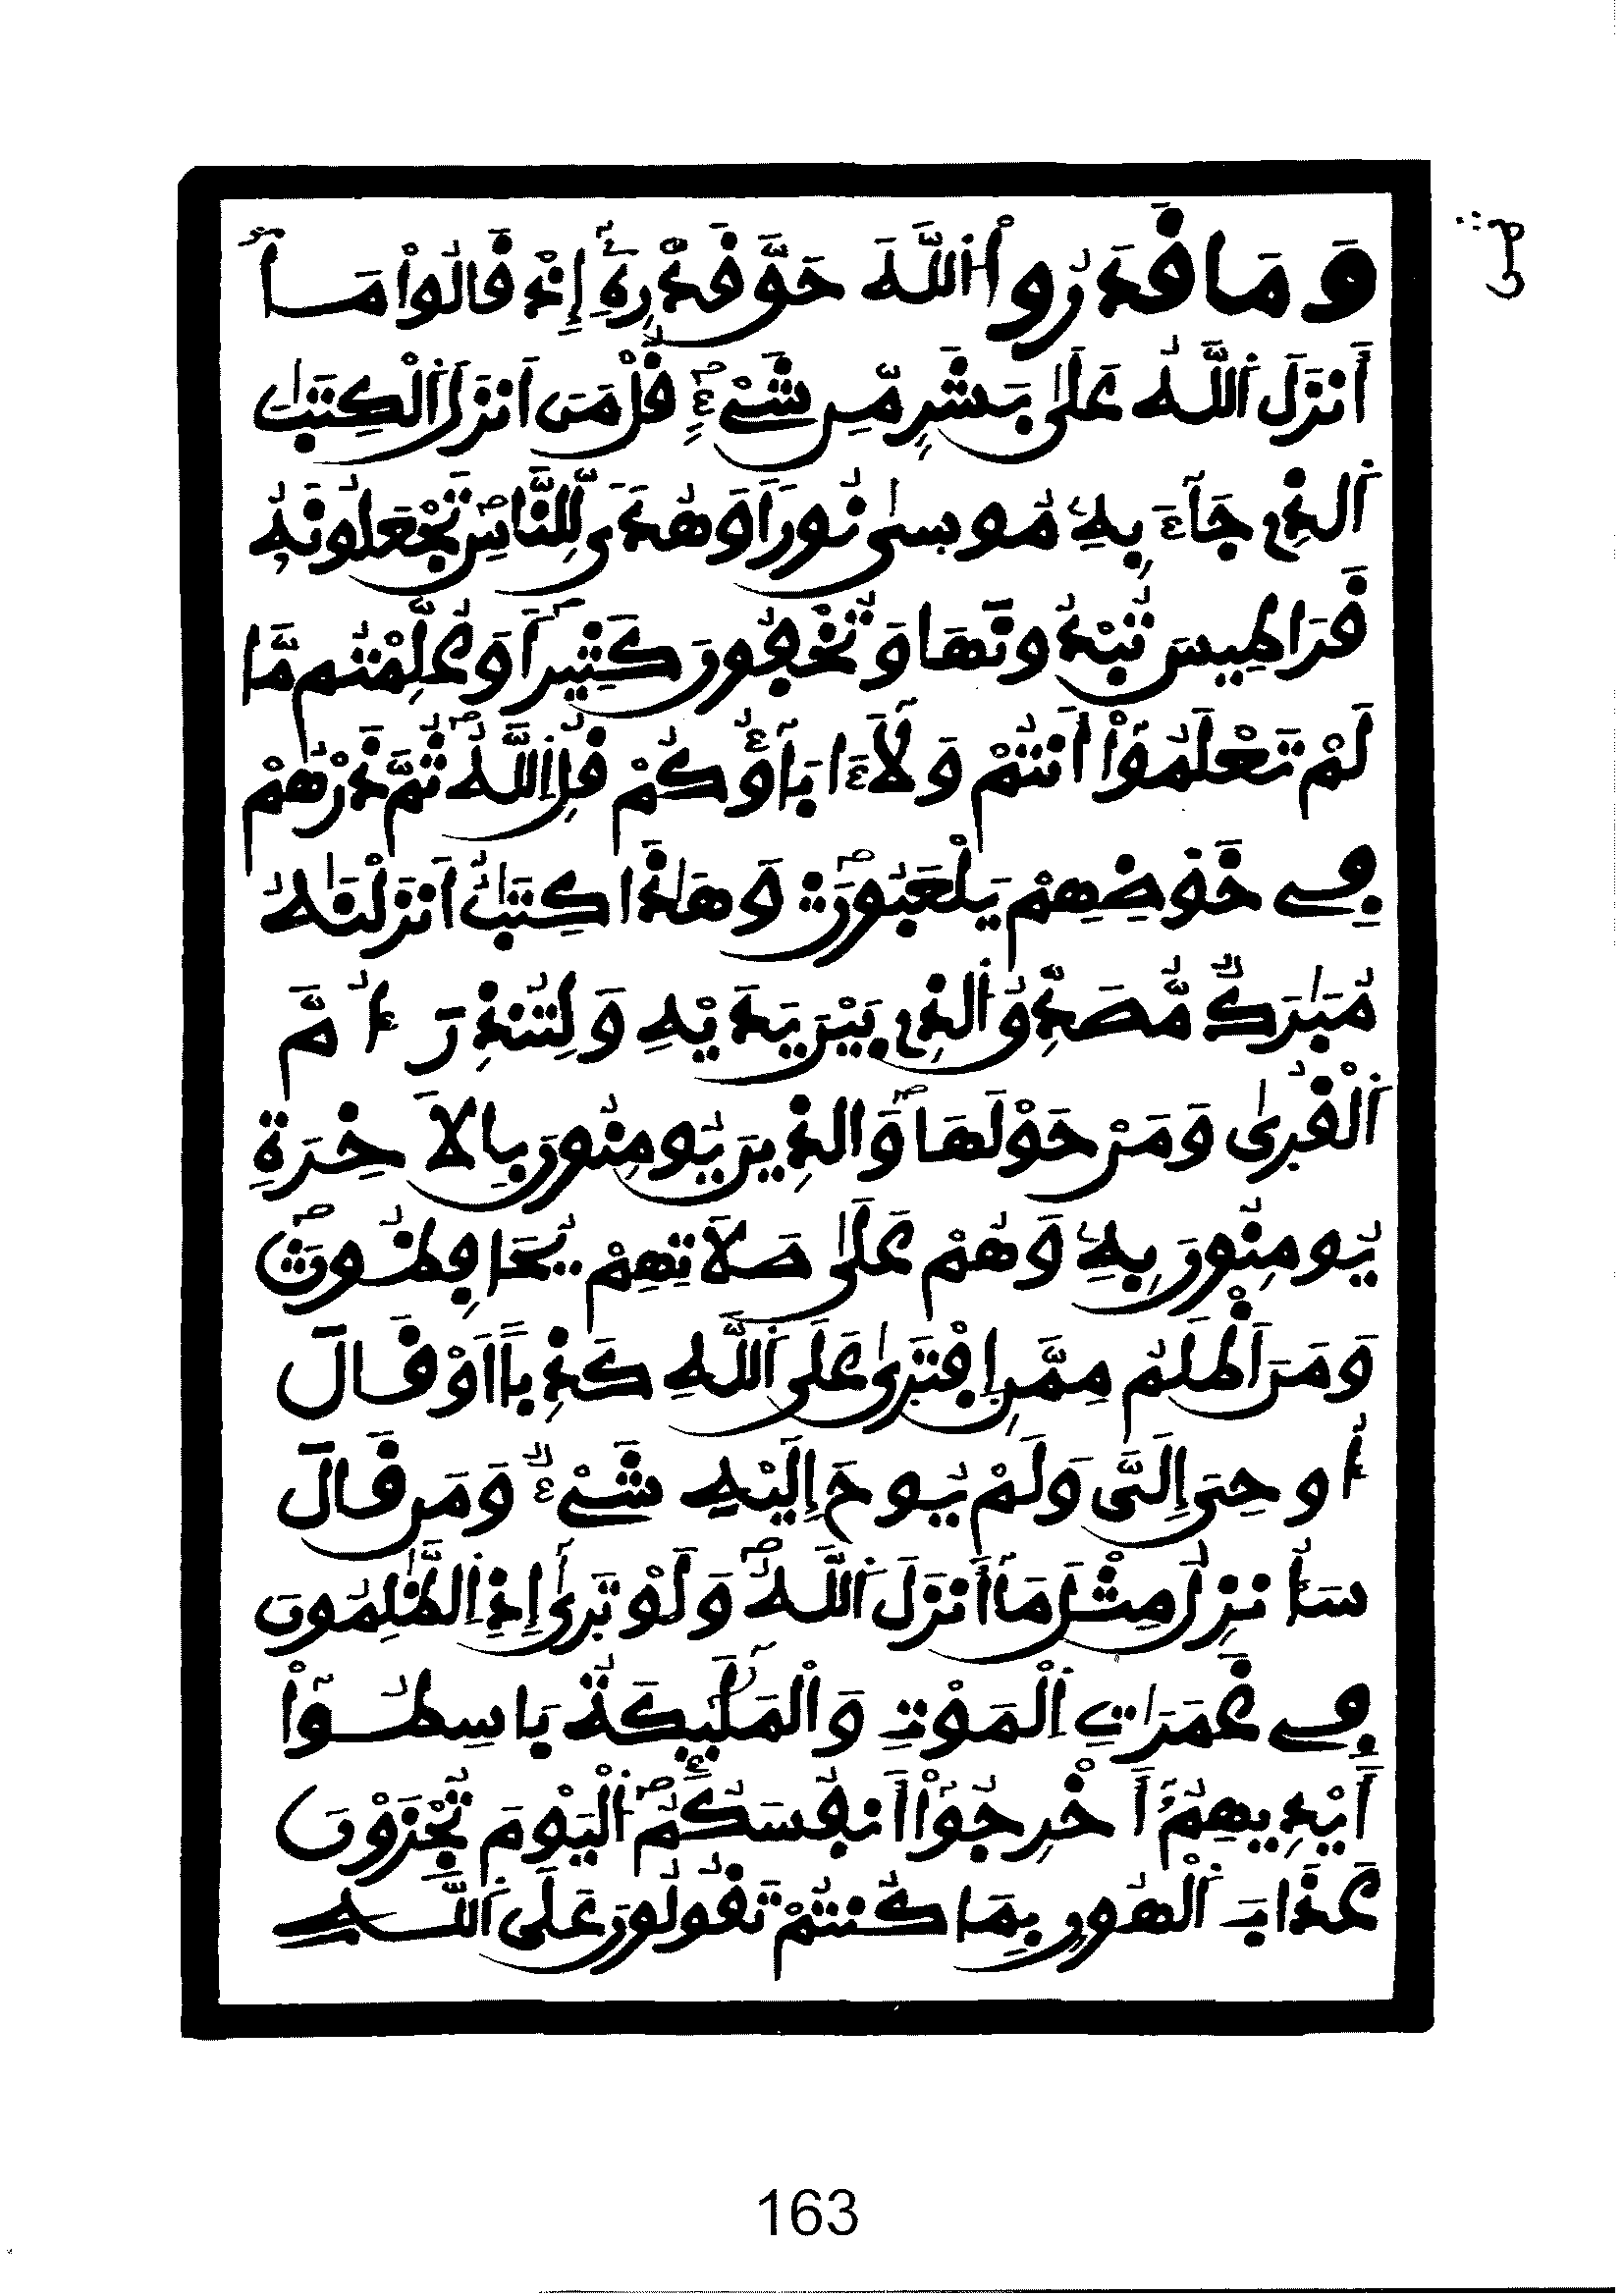 وَمَا قَدَرُواْ اُللَّهَ حَقَّ قَدْرِهِۦٓ إِذْ قَالُواْ مَآ
أَنزَلَ اَللَّهُ عَلَىٰ بَشَرٖ مِّن شَيْءٖۖ قُلْ مَنَ اَنزَلَ اَلْكِتَٰبَ
اَلذِے جَآءَ بِهِۦ مُوسىٰ نُوراٗ وَهُدىٗ لِّلنَّاسِۖ تَجْعَلُونَهُۥ
قَرَاطِيسَ تُبْدُونَهَا وَتُخْفُونَ كَثِيراٗۖ وَعُلِّمْتُم مَّا
لَمْ تَعْلَمُوٓاْ أَنتُمْ وَلَآ ءَابَآؤُكُمْ قُلِ اِللَّهُۖ ثُمَّ ذَرْهُمْ
فِے خَوْضِهِمْ يَلْعَبُونَۖ وَهَٰذَا كِتَٰبٌ اَنزَلْنَٰهُ
مُبَٰرَكٞ مُّصَدِّقُ اُلذِے بَيْنَ يَدَيْهِ وَلِتُنذِرَ أُمَّ
اَلْقُر۪ىٰ وَمَنْ حَوْلَهَاۖ وَالذِينَ يُومِنُونَ بِالَاخِرَةِ
يُومِنُونَ بِهِۦ وَهُمْ عَلَىٰ صَلَاتِهِمْ يُحَافِظُونَۖ
وَمَنَ اَظْلَمُ مِمَّنِ اِفْتَر۪ىٰ عَلَى اَللَّهِ كَذِباً اَوْ قَالَ
أُوحِىَ إِلَىَّ وَلَمْ يُوحَ إِلَيْهِ شَيْءٞ وَمَن قَالَ
سَأُنزِلُ مِثْلَ مَآ أَنزَلَ اَللَّهُۖ وَلَوْ تَر۪ىٰٓ إِذِ اِلظَّٰلِمُونَ
فِے غَمَرَٰتِ اِلْمَوْتِ وَالْمَلَٰٓئِكَةُ بَاسِطُوٓاْ
أَيْدِيهِمُۥٓ أَخْرِجُوٓاْ أَنفُسَكُمُۖ اُلْيَوْمَ تُجْزَوْنَ
عَذَابَ اَلْهُونِ بِمَا كُنتُمْ تَقُولُونَ عَلَى اَللَّهِ
163